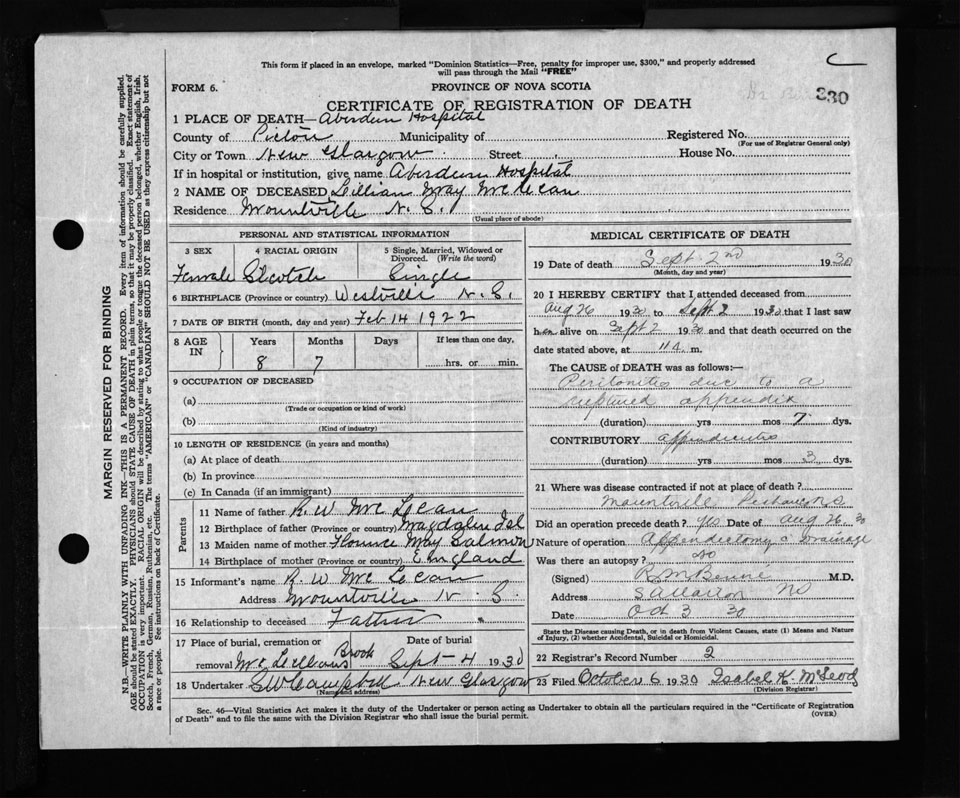 This form if placed in an envelope, marked "Dominion Statistics—Free, penalty for improper use, $300," and properly addressed
will pass through the Mail "FREE"
C
330
FORM 6.
PROVINCE OF NOVA SCOTIA
CERTIFICATE OF REGISTRATION OF DEATH
1 PLACE OF DEATH—Aberdeen Hospital
County of Pictou Municipality of Registered No.
(For use of Registrar General only)
City or Town New Glasgow Street House No.
If in hospital or institution, give name Aberdeen Hospital
2 NAME OF DECEASED Lillian May McLean
Residence Mountville N. S.
(Usual place of abode)
PERSONAL AND STATISTICAL INFORMATION
3 SEX 4 RACIAL ORIGIN 5 Single, Married, Widowed or
Divorced. (Write the word)
Female Scotch Single
6 BIRTHPLACE (Province or country) Westville N. S.
7 DATE OF BIRTH (month, day and year) Feb 14 1922
8 AGE IN Years Months Days If less than one day,
8 7 hrs. or min.
9 OCCUPATION OF DECEASED
(a)
(Trade or occupation or kind of work)
(b)
(Kind of industry)
10 LENGTH OF RESIDENCE (in years and months)
(a) At place of death
(b) In province
(c) In Canada (if an immigrant)
Parents
11 Name of father R. W. McLean
12 Birthplace of father (Province or country) Magdalen Isl
13 Maiden name of mother Florence May Salmon
14 Birthplace of mother (Province or country) England
15 Informant's name R. W. McLean
Address Mountville N. S.
16 Relationship to deceased Father
17 Place of burial, cremation or Date of burial
removal McLellans Brook Sept 4 1930
18 Undertaker Campbell New Glasgow
(Name and address)
MEDICAL CERTIFICATE OF DEATH
19 Date of death Sept. 2nd 1930
(Month, day and year)
20 I HEREBY CERTIFY that I attended deceased from
Aug 26 1930 to Sept 2 1930 that I last saw
her alive on Sept 2 1930 and that death occurred on
date stated above, at m.
The CAUSE of DEATH was as follows:—
Peritonitis due to a
ruptured appendix
(duration) yrs mos 7 dys.
CONTRIBUTORY appendicitis
(duration) yrs mos 3 dys.
21 Where was disease contracted if not at place of death?
Mountville
Did an operation precede death? Yes Date of Aug 26 30
Nature of operation Appendectomy c Drainage
Was there an autopsy? No
(Signed) M.D.
Address Stellarton NS
Date Oct 3 30
State the Disease causing Death, or in death from Violent Causes, state (1) Means and Nature
of Injury, (2) whether Accidental, Suicidal or Homicidal.
22 Registrar's Record Number 2
23 Filed October 6 1930 Isabel K. McLeod
(Division Registrar)
Sec. 46—Vital Statistics Act makes it the duty of the Undertaker or person acting as Undertaker to obtain all the particulars required in the "Certificate of Registration
of Death" and to file the same with the Division Registrar who shall issue the burial permit. (OVER)
MARGIN RESERVED FOR BINDING
N.B.—WRITE PLAINLY WITH UNFADING INK—THIS IS A PERMANENT RECORD. Every item of information should be carefully supplied.
AGE should be stated EXACTLY. PHYSICIANS should STATE CAUSE OF DEATH in plain terms, so that it may be properly classified. Exact statement of
OCCUPATION is very important. RACIAL ORIGIN will be described by stating to what people or tongue the deceased person belonged, whether English, Irish,
Scotch, French, German, Russian, Ruthenian, etc. The terms "AMERICAN" or "CANADIAN" SHOULD NOT BE USED as they express citizenship but not
a race or people. See instructions on back of Certificate.